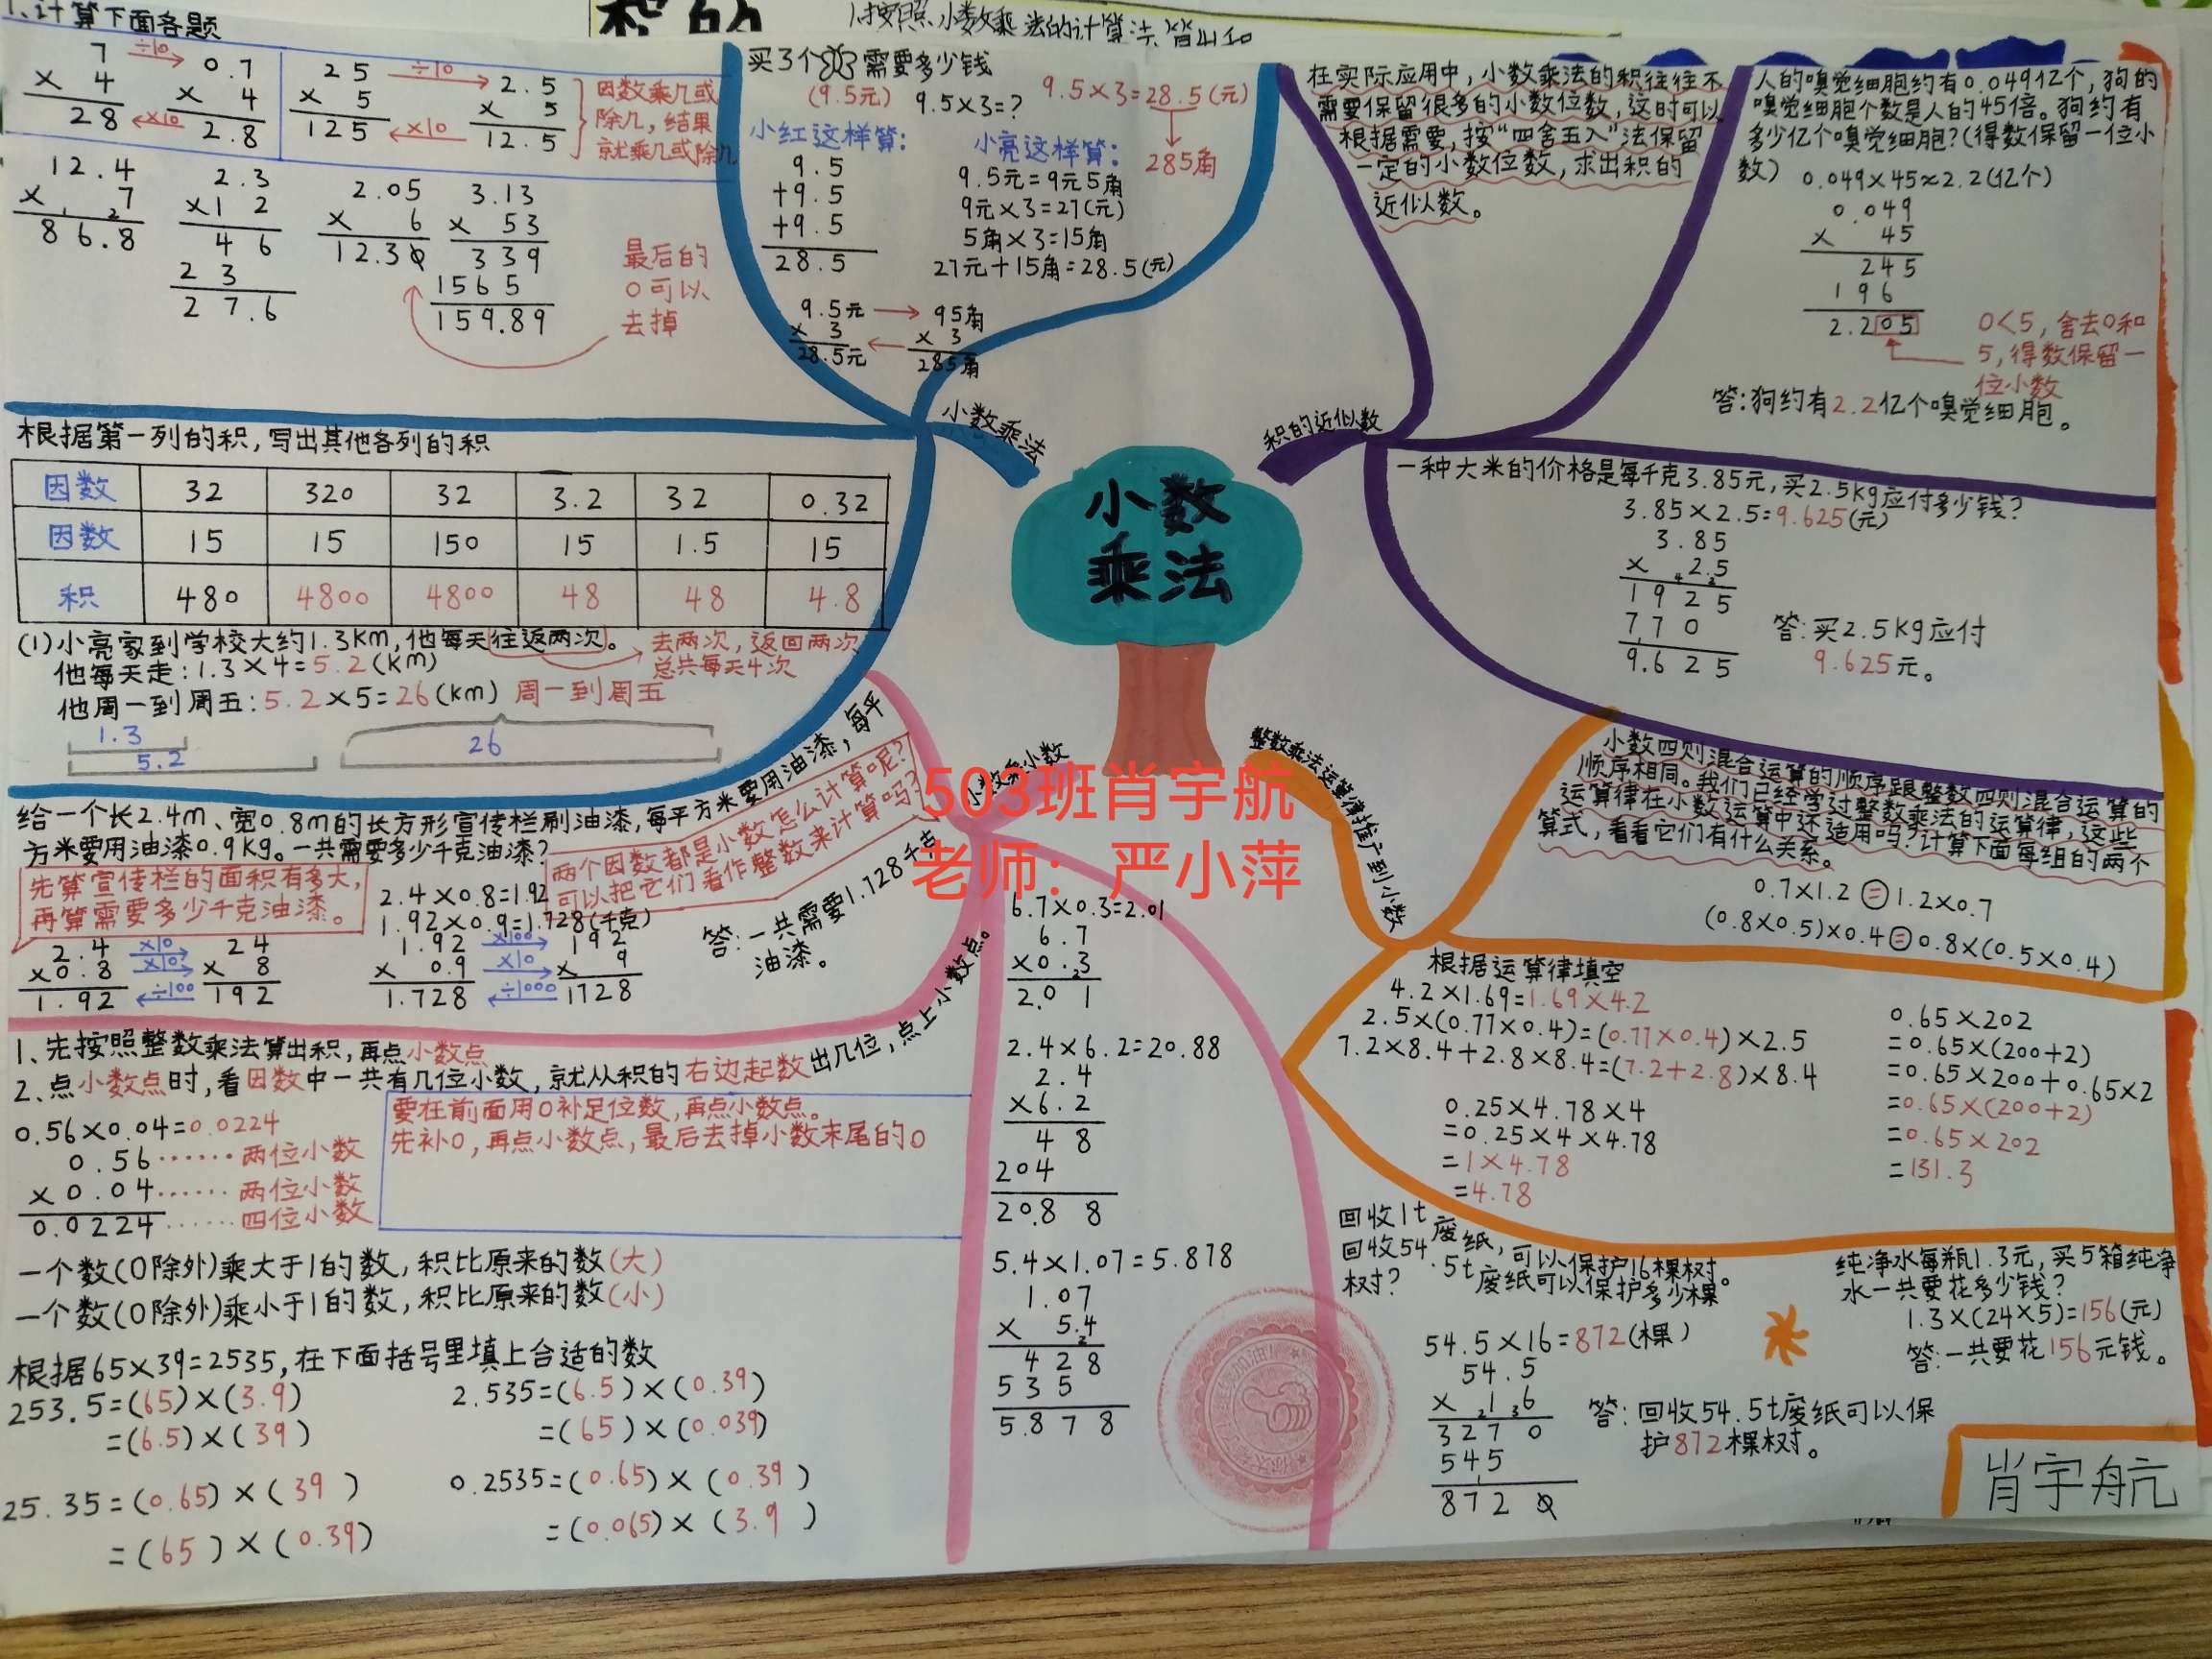 1.计算下面各题
7 ÷10 0.7
× 4 × 4
28 ×10 2.8
25 ÷10 2.5
× 5 × 5
125 ×10 12.5
因数乘几或
除几，结果
就乘几或除几
12.4
× 7
86.8
2.3
×12
46
23
27.6
2.05
× 6
12.30
3.13
× 53
339
1565
159.89
最后的
0可以
去掉
1.按照小数乘法的计算法
买3个 需要多少钱
(9.5元) 9.5×3=?
9.5×3=28.5(元)
285角
小红这样算:
9.5
+9.5
+9.5
28.5
小亮这样算:
9.5元=9元5角
9元×3=27(元)
5角×3=15角
27元+15角=28.5(元)
9.5元 95角
× 3 × 3
28.5元 285角
小数乘法
根据第一列的积，写出其他各列的积
因数 32 320 32 3.2 32 0.32
因数 15 15 150 15 1.5 15
积 480 4800 4800 48 48 4.8
(1)小亮家到学校大约1.3km,他每天往返两次。
去两次，返回两次
总共每天4次
他每天走:1.3×4=5.2(km)
他周一到周五:5.2×5=26(km) 周一到周五
1.3
5.2
26
小数
乘法
积的近似数
在实际应用中，小数乘法的积往往不
需要保留很多的小数位数，这时可以
根据需要，按“四舍五入”法保留
一定的小数位数，求出积的
近似数。
人的嗅觉细胞约有0.049亿个，狗的
嗅觉细胞个数是人的45倍。狗约有
多少亿个嗅觉细胞?(得数保留一位小
数) 0.049×45≈2.2(亿个)
0.049
× 45
245
196
2.205
0<5，舍去0和
5，得数保留一
位小数
答:狗约有2.2亿个嗅觉细胞。
一种大米的价格是每千克3.85元，买2.5kg应付多少钱?
3.85×2.5=9.625(元)
3.85
× 2.5
1925
770
9.625
答:买2.5kg应付
9.625元。
小数乘小数
给一个长2.4m、宽0.8m的长方形宣传栏刷油漆，每平方米要用油漆，每平
方米要用油漆0.9kg。一共需要多少千克油漆?
两个因数都是小数怎么计算呢?
可以把它们看作整数来计算吗?
先算宣传栏的面积有多大，
再算需要多少千克油漆。
2.4×0.8=1.92
1.92×0.9=1.728(千克)
2.4 ×10 24
×0.8 ×10 × 8
1.92 ÷100 192
1.92 ×100 192
× 0.9 ×10 × 9
1.728 ÷1000 1728
答:一共需要1.728千克
油漆。
1、先按照整数乘法算出积，再点小数点
2、点小数点时，看因数中一共有几位小数，就从积的右边起数出几位，点上小数点。
要在前面用0补足位数，再点小数点。
先补0，再点小数点，最后去掉小数末尾的0
0.56×0.04=0.0224
0.56……两位小数
×0.04……两位小数
0.0224……四位小数
一个数(0除外)乘大于1的数，积比原来的数(大)
一个数(0除外)乘小于1的数，积比原来的数(小)
根据65×39=2535，在下面括号里填上合适的数
253.5=(65)×(3.9)
=(6.5)×(39)
2.535=(6.5)×(0.39)
=(65)×(0.039)
25.35=(0.65)×(39)
=(65)×(0.39)
0.2535=(0.65)×(0.39)
=(0.065)×(3.9)
6.7×0.3=2.01
6.7
×0.3
2.01
2.4×6.2=20.88
2.4
×6.2
48
204
20.88
5.4×1.07=5.878
1.07
× 5.4
428
535
5.878
503班肖宇航
老师：严小萍
整数乘法运算律推广到小数
小数四则混合运算的顺序跟整数四则混合运算的
顺序相同。我们已经学过整数乘法的运算律，这些
运算律在小数运算中还适用吗?计算下面每组的两个
算式，看看它们有什么关系。
0.7×1.2=1.2×0.7
(0.8×0.5)×0.4=0.8×(0.5×0.4)
根据运算律填空
4.2×1.69=1.69×4.2
2.5×(0.77×0.4)=(0.77×0.4)×2.5
7.2×8.4+2.8×8.4=(7.2+2.8)×8.4
0.25×4.78×4
=0.25×4×4.78
=1×4.78
=4.78
0.65×202
=0.65×(200+2)
=0.65×200+0.65×2
=0.65×(200+2)
=0.65×202
=131.3
回收1t废纸，可以保护16棵树。
回收54.5t废纸可以保护多少棵
树?
54.5×16=872(棵)
54.5
× 16
3270
545
8720
答:回收54.5t废纸可以保
护872棵树。
纯净水每瓶1.3元，买5箱纯净
水一共要花多少钱?
1.3×(24×5)=156(元)
答:一共要花156元钱。
肖宇航